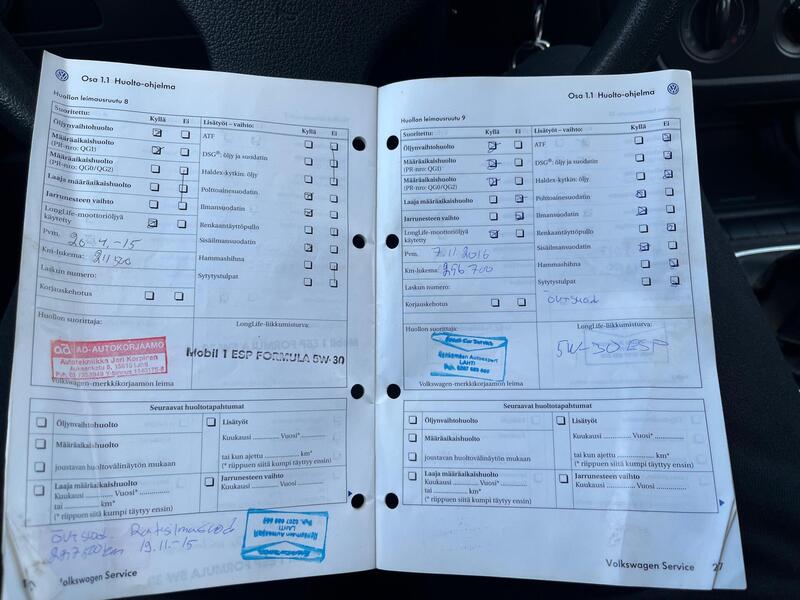 Osa 1.1 Huolto-ohjelma
Huollon leimausruutu 8
Suoritettu: Kyllä Ei
Öljynvaihtohuolto
Määräaikaishuolto
(PR-nro: QG1)
Määräaikaishuolto
(PR-nro: QG0/QG2)
Laaja määräaikaishuolto
Jarrunesteen vaihto
LongLife-moottoriöljyä
käytetty
Pvm.
Km-lukema:
Laskun numero:
Korjauskehotus
Lisätyöt – vaihto: Kyllä Ei
ATF
DSG®: öljy ja suodatin
Haldex-kytkin: öljy
Polttoainesuodatin
Ilmansuodatin
Renkaantäyttöpullo
Sisäilmansuodatin
Hammashihna
Sytytystulpat
Huollon suorittaja:
ad AD-AUTOKORJAAMO
Autotekniikka Jari Korpinen
Volkswagen-merkkikorjaamon leima
LongLife-liikkumisturva:
Mobil 1 ESP FORMULA 5W-30
Seuraavat huoltotapahtumat
Öljynvaihtohuolto
Määräaikaishuolto
joustavan huoltovälinäytön mukaan
Laaja määräaikaishuolto
Kuukausi .............. Vuosi* ..............
tai .............. km*
(* riippuen siitä kumpi täytyy ensin)
Lisätyöt
Kuukausi .............. Vuosi* ..............
tai kun ajettu .............. km*
(* riippuen siitä kumpi täytyy ensin)
Jarrunesteen vaihto
Kuukausi .............. Vuosi ..............
19.11.-15
Volkswagen Service
Osa 1.1 Huolto-ohjelma
Huollon leimausruutu 9
Suoritettu: Kyllä Ei
Öljynvaihtohuolto
Määräaikaishuolto
(PR-nro: QG1)
Määräaikaishuolto
(PR-nro: QG0/QG2)
Laaja määräaikaishuolto
Jarrunesteen vaihto
LongLife-moottoriöljyä
käytetty
Pvm. 7.11 2016
Km-lukema: 296 700
Laskun numero:
Korjauskehotus
Lisätyöt – vaihto: Kyllä Ei
ATF
DSG®: öljy ja suodatin
Haldex-kytkin: öljy
Polttoainesuodatin
Ilmansuodatin
Renkaantäyttöpullo
Sisäilmansuodatin
Hammashihna
Sytytystulpat
Huollon suorittaja:
LAHTI
Volkswagen-merkkikorjaamon leima
LongLife-liikkumisturva:
5W-30 ESP
Seuraavat huoltotapahtumat
Öljynvaihtohuolto
Määräaikaishuolto
joustavan huoltovälinäytön mukaan
Laaja määräaikaishuolto
Kuukausi .............. Vuosi* ..............
tai .............. km*
(* riippuen siitä kumpi täytyy ensin)
Lisätyöt
Kuukausi .............. Vuosi* ..............
tai kun ajettu .............. km*
(* riippuen siitä kumpi täytyy ensin)
Jarrunesteen vaihto
Kuukausi .............. Vuosi ..............
Volkswagen Service 27